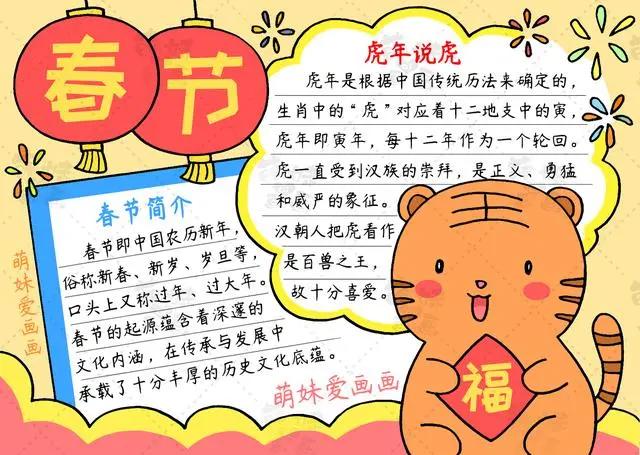 春节
虎年说虎
虎年是根据中国传统历法来确定的,
生肖中的“虎”对应着十二地支中的寅,
虎年即寅年，每十二年作为一个轮回。
虎一直受到汉族的崇拜，是正义、勇猛
和威严的象征。
汉朝人把虎看作
是百兽之王，
故十分喜爱。
春节简介
春节即中国农历新年，
俗称新春、新岁、岁旦等，
口头上又称过年、过大年。
春节的起源蕴含着深邃的
文化内涵，在传承与发展中
承载了十分丰厚的历史文化底蕴。
萌妹爱画画
萌妹爱画画
福